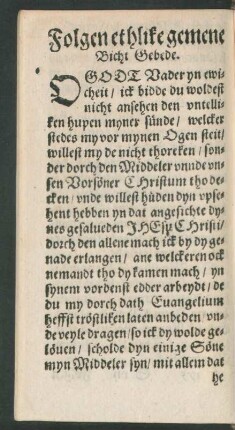 Folgen ethlike gemene
Bicht Gebede.
O GODT Vader yn ewi-
cheit / ick bidde du woldest
nicht ansehen den vntelli-
ken hupen myner sünde / welcker
stedes my vor mynen Ogen steit /
willest my de nicht thoreken / son-
der dorch den Middeler vnnde vn-
sen Vorsöner CHristum tho de-
cken / vnde willest hüden dyn vpse-
hent hebben yn dat angesichte dy-
nes gesalueden JHEsu CHristi /
dorch den allene mach ick by dy ge-
nade erlangen / ane welckeren ock
nemandt tho dy kamen mach / yn
synem vordenst edder arbeydt / de
du my dorch dath Euangelium
heffst tröstliken laten anbeden / vn-
de veyle dragen / so ick dy wolde ge-
löuen / scholde dyn einige Söne
myn Middeler syn / mit allem dat
he